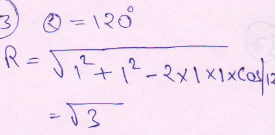 3 θ = 120°
R = √1² + 1² - 2×1×1×cos 12
= √3